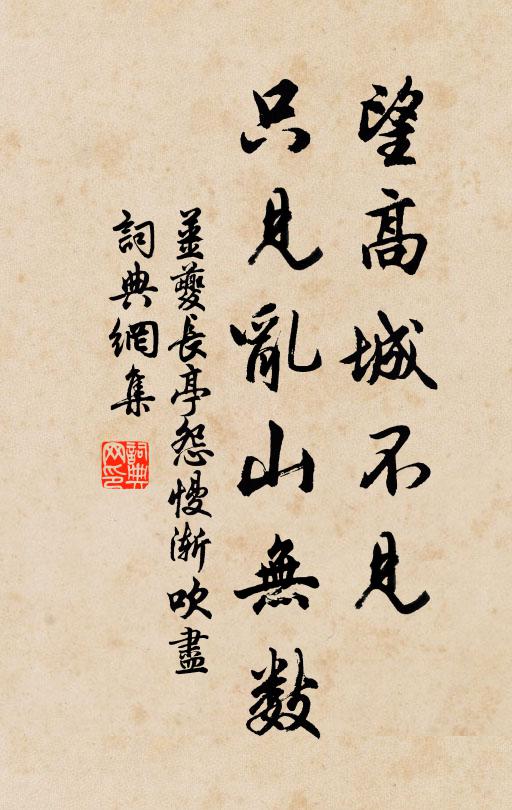 望高城不見
只見亂山無數
姜夔長亭怨慢漸吹盡
詞典網集
詞典網印